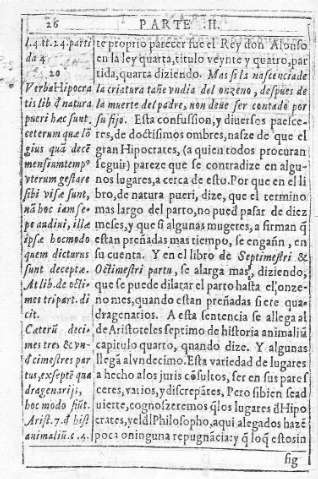 26
PARTE II.
l.4.tt.24.parti
da 4
20
Verba Hipocra
tis lib đ natura
pueri hæc sunt.
ceterum quæ lō
gius quā decē
mensium temp⁹
vterum gestare
sibi visæ sunt,
nā hoc iam se-
pe audini, illæ
ipsæ hocmodo
quem dicturus
sunt deceptæ.
At lib. de octi-
mes tri part. di
cit.
Cæterū deci-
mes tres & vn-
decimestres par
tus, ex septē qua
dragenarijs,
hoc modo fiūt.
Arist. 7. đ hist
animaliū. c. 4.
te proprio parecer fue el Rey don Alonso
en la ley quarta, titulo veynte y quatro, par
tida, quarta diziendo. Mas si la nascencia de
la criatura tañe vn dia del onzeno, despues de
la muerte del padre, non deue ser contado por
su fijo. Esta confussion, y diuersos paresce-
res, de doctisimos ombres, nasze de que el
gran Hipocrates, (a quien todos procuran
seguir) pareze que se contradize en algu-
nos lugares, a cerca de esto. Por que en el li
bro, de natura pueri, dize, que el termino
mas largo del parto, no pued pasar de diez
meses, y que si algunas mugeres, a firman q̄
estan preñadas mas tiempo, se engañ, en
su cuenta. Y en el libro de Septimestri &
Octimestri partu, se alarga mas, diziendo,
que se puede dilatar el parto hasta el, onze-
no mes, quando estan preñadas siete qua-
dragenarios. A esta sentencia se allega al
de Aristoteles septimo de historia animaliū
capitulo quarto, quando dize. Y algunas
llegā al vndecimo. Esta variedad de lugares
a hecho alos juris cōsultos, ser en sus pares
ceres, varios, y discrepātes. Pero si bien se ad
uierte, cognoszeremos q̄ los lugares đ Hipo
crates, y el đl Philosopho, aqui alegados hazē
poca o ninguna repugnācia: y q̄ loq̄ estos in
sig